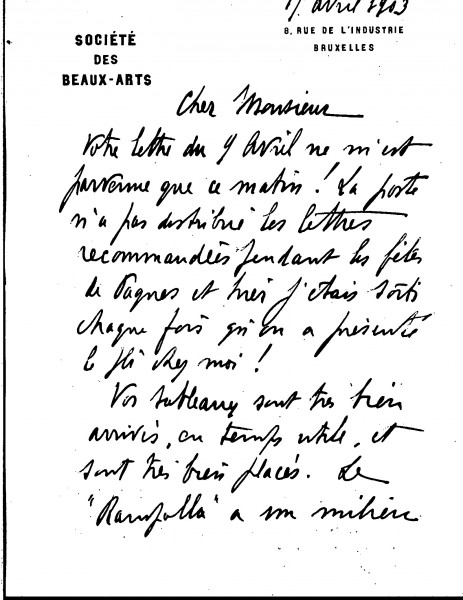 avril 1903
8, RUE DE L'INDUSTRIE
BRUXELLES
SOCIÉTÉ
DES
BEAUX-ARTS
Cher Monsieur
Votre lettre du 9 Avril ne m'est
parvenue que ce matin! La poste
n'a pas distribué les lettres
recommandées pendant les fêtes
de Pâques et hier j'étais sorti
chaque fois qu'on a présenté
le pli chez moi!
Vos tableaux sont très bien
arrivés, en temps utile, et
sont très bien placés. Le
"Rampolla" a un milieu